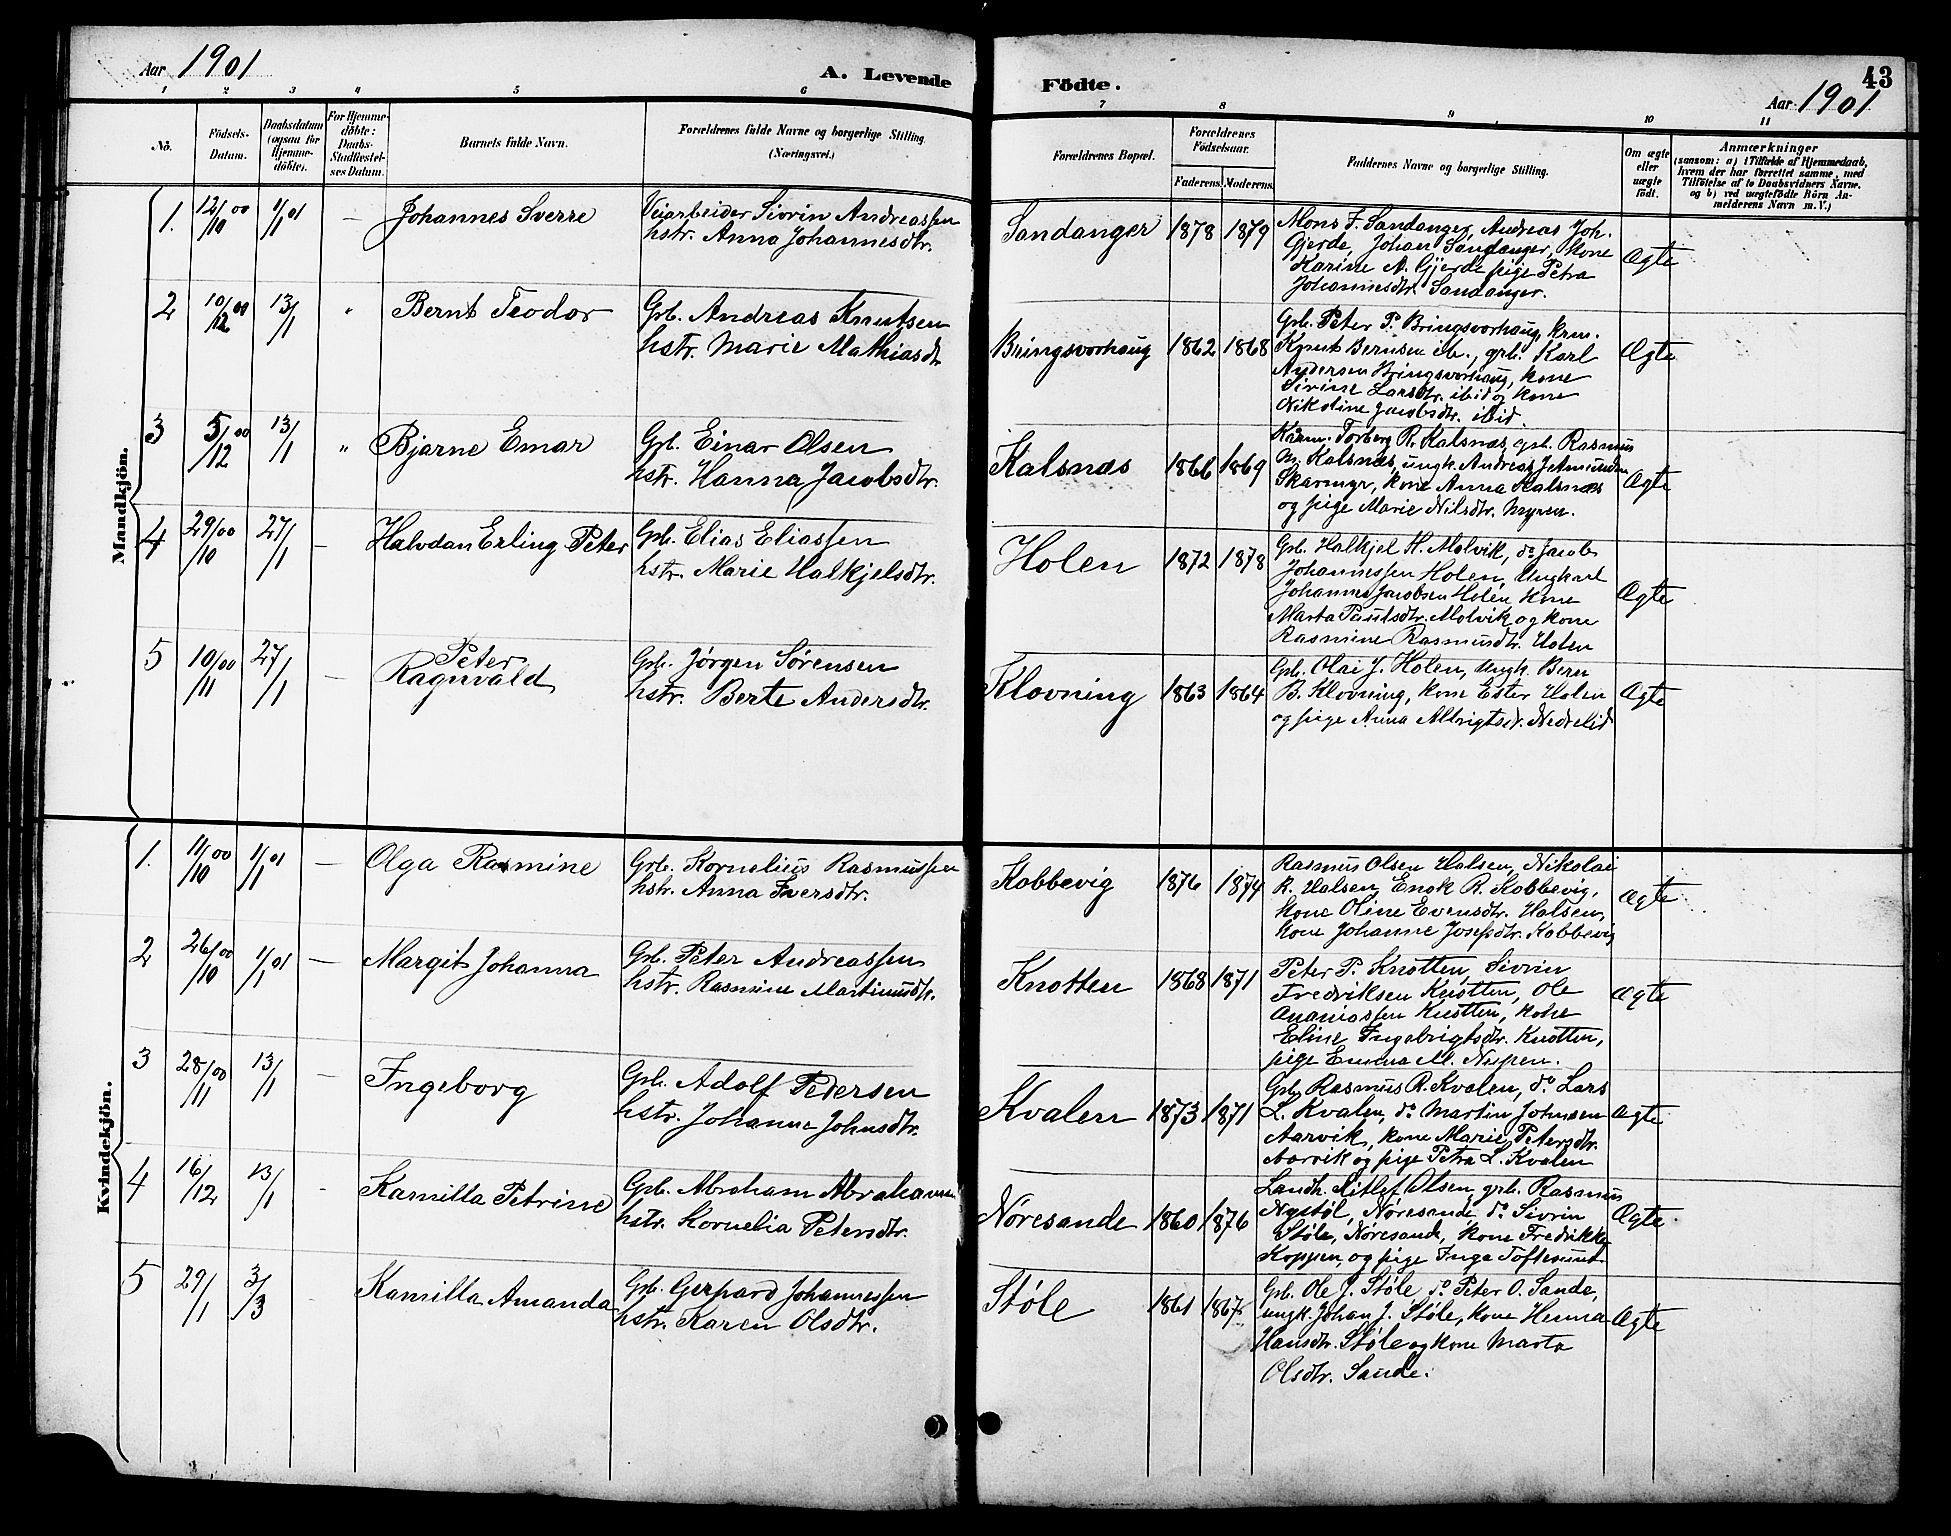 Aar 1901
A. Levende
Födte.
43
Aar 1901
1 2 3 4 5 6 7 8 9 10 11
No.
Födsels-
Datum.
Daabsdatum
(ogsaa for
Hjemme-
døbte).
For Hjemme-
døbte:
Daabs-
Stadfæstel-
ses Datum.
Barnets fulde Navn.
Forældrenes fulde Navne og borgerlige Stilling.
(Næringsvei.)
Forældrenes Bopæl.
Forældrenes
Födselsaar.
Faderens.
Moderens.
Faddernes Navne og borgerlige Stilling.
Om ægte
eller
uægte
født.
Anmærkninger
(saasom: a) i Tilfælde af Hjemmedaab,
hvem der har forrettet samme, med
Tilföielse af to Daabsvidners Navne,
og b) ved uægtefödte Börn An-
melderens Navn m.V.)
Mandkjön.
1. 12/10 00 1/1 01 — Johannes Sverre
Veiarbeider Sivrin Andreassen
hstr. Anna Johannesdtr.
Sandanger 1878 1879
Mons F. Sandanger, Andreas Joh.
Gjerde, Johan Sandanger, kone
Karine A. Gjerde pige Petra
Johannesdtr. Sandanger.
Ægte
2 10/12 00 13/1 " Bernt Teodor
Grb. Andreas Knutsen
hstr. Marie Mathiasdtr
Bringsvorhaug 1862 1868
Grb. Peter P. Bringsvorhaug, krm.
Knut Berntsen ib., grb. Karl
Andersen Bringsvorhaug, kone
Sivrine Larsdtr. ibid og kone
Nikoline Jacobsdtr. ibid.
Ægte
3 5/12 00 13/1 " Bjarne Emar
Grb. Einar Olsen
hstr. Hanna Jacobsdtr.
Kalsnæs 1866 1869
Kaarm. Torberg R. Kalsnæs, grb. Rasmus
M. Kalsnæs, ungk. Andreas J. Amundsen
Skarmyr, kone Anna Kalsnæs
og pige Marie Nilsdtr. Myren.
Ægte
4 29/10 00 27/1 — Halvdan Erling Peter
Grb. Elias Eliassen
hstr. Marie Halkjelsdtr.
Holen 1872 1878
Grb. Halkjel H. Molvik, do Jacob
Johannessen Holen, Ungkarl
Johannes Jacobsen Holen kone
Marta Paulsdtr. Molvik og kone
Rasmine Rasmusdtr. Holen
Ægte
5 10/11 00 27/1 — Peter
Ragnvald
Grb. Jørgen Sørensen
hstr. Berte Andersdtr.
Klovning 1863 1864
Grb. Olai J. Holen, ungk. Bern
B. Klovning, kone Ester Holen
og pige Anna Albrigtsdr. Nedrelid
Ægte
Kvindekjön.
1. 11/10 00 1/1 01 — Olga Rasmine
Grb. Kornelius Rasmussen
hstr. Anna Iversdtr.
Kobbevig 1876 1874
Rasmus Olsen Halsen, Nikolai
R. Halsen, Enok R. Kobbevig,
kone Oline Evensdtr. Halsen,
kone Johanne Josefsdtr. Kobbevig
Ægte
2 26/10 00 1/1 01 — Margit Johanna
Grb. Peter Andreassen
hstr. Rasmine Martinusdtr.
Knotten 1868 1871
Peter P. Knotten, Sivrin
Fredriksen Knotten, Ole
Ananiassen Knotten, kone
Eline Ingebrigtsdtr. Knotten,
pige Emma M. Nespen.
Ægte
3 28/11 00 13/1 — Ingeborg
Grb. Adolf Pedersen
hstr. Johanne Johnsdtr.
Kvalen 1873 1871
Grb. Rasmus R. Kvalen, do Lars
L. Kvalen, do Martin Johnsen
Aarvik, kone Marie Petersdtr.
Aarvik og pige Petra L. Kvalen
Ægte
4 16/12 13/1 - Kamilla Petrine
Grb. Abraham Abrahamsen
hstr. Kornelia Petersdtr.
Nøresande 1860 1876
Landh. Ditlef Olsen, grb. Rasmus
Nystøl, Nøresande do Sivrin
Støle, Nøresande, kone Fredrikke
Koppen, og pige Inga Toftesund.
Ægte
5 29/1 3/3 - Kamilla Amanda
Grb. Gerhard Johannessen
hstr. Karen Olsdtr.
Støle 1861 1867
Grb. Ole J. Støle, do Peter O. Sande,
ungk. Johan J. Støle, kone Henna
Hansdtr. Støle og kone Marta
Olsdtr. Sande.
Ægte